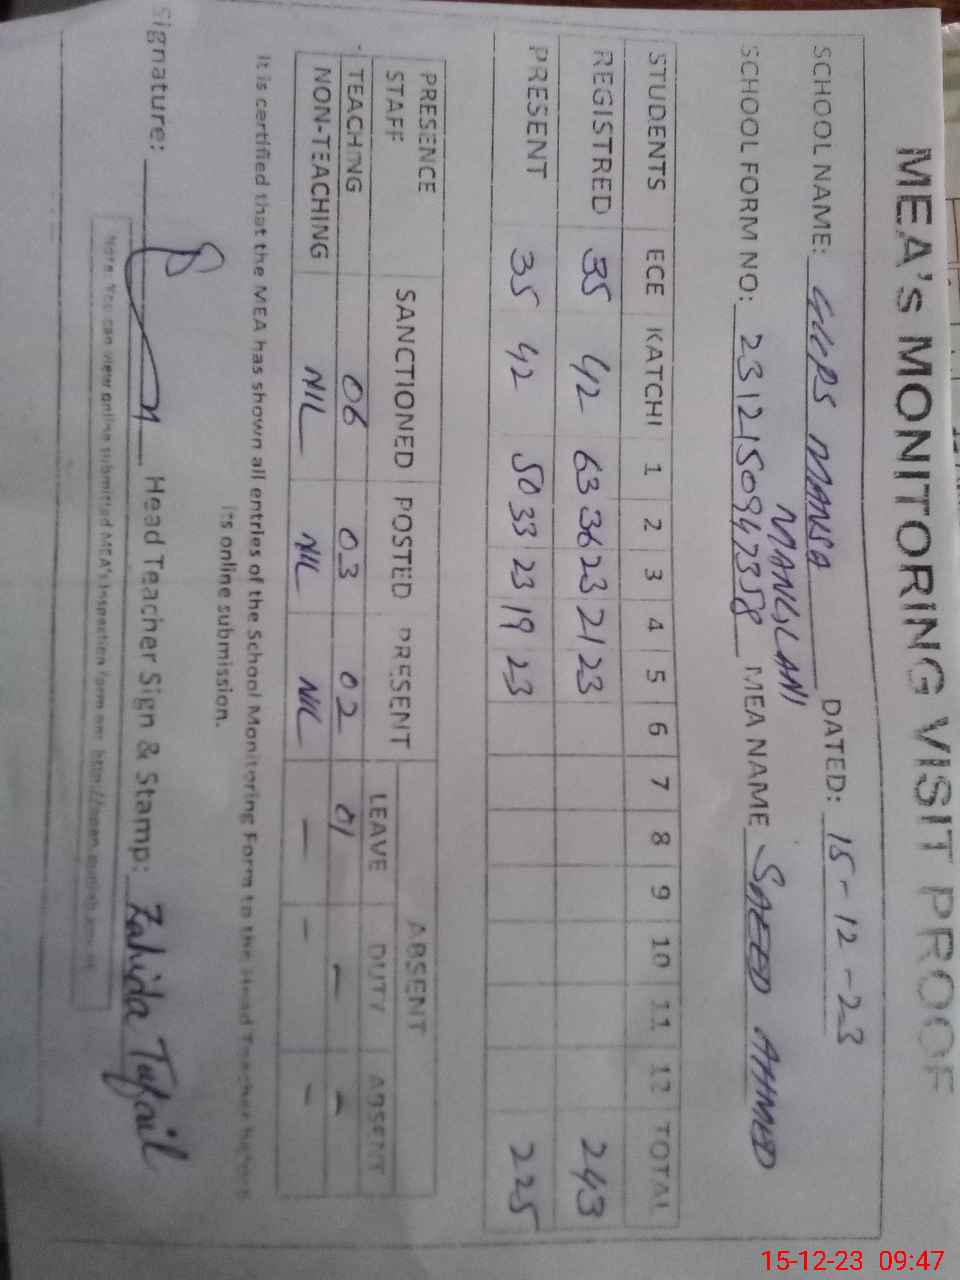 MEA's MONITORING VISIT PROOF
SCHOOL NAME: GGPS MANSA DATED: 15-12-23
MANGLANI
SCHOOL FORM NO: 2312150947358 MEA NAME SAEED AHMED
STUDENTS ECE KATCHI 1 2 3 4 5 6 7 8 9 10 11 12 TOTAL
REGISTRED 35 42 63 36 23 21 23 243
PRESENT 35 42 50 33 23 19 23 225
PRESENCE SANCTIONED POSTED PRESENT ABSENT
STAFF LEAVE DUTY ABSENT
TEACHING 06 03 02 01 - -
NON-TEACHING NIL NIL NIL - - -
It is certified that the MEA has shown all entries of the School Monitoring Form to the Head Teacher before
its online submission.
Signature: Head Teacher Sign & Stamp: Zahida Tufail
Note: You can view online submitted MEA's Inspection Form on:
15-12-23 09:47